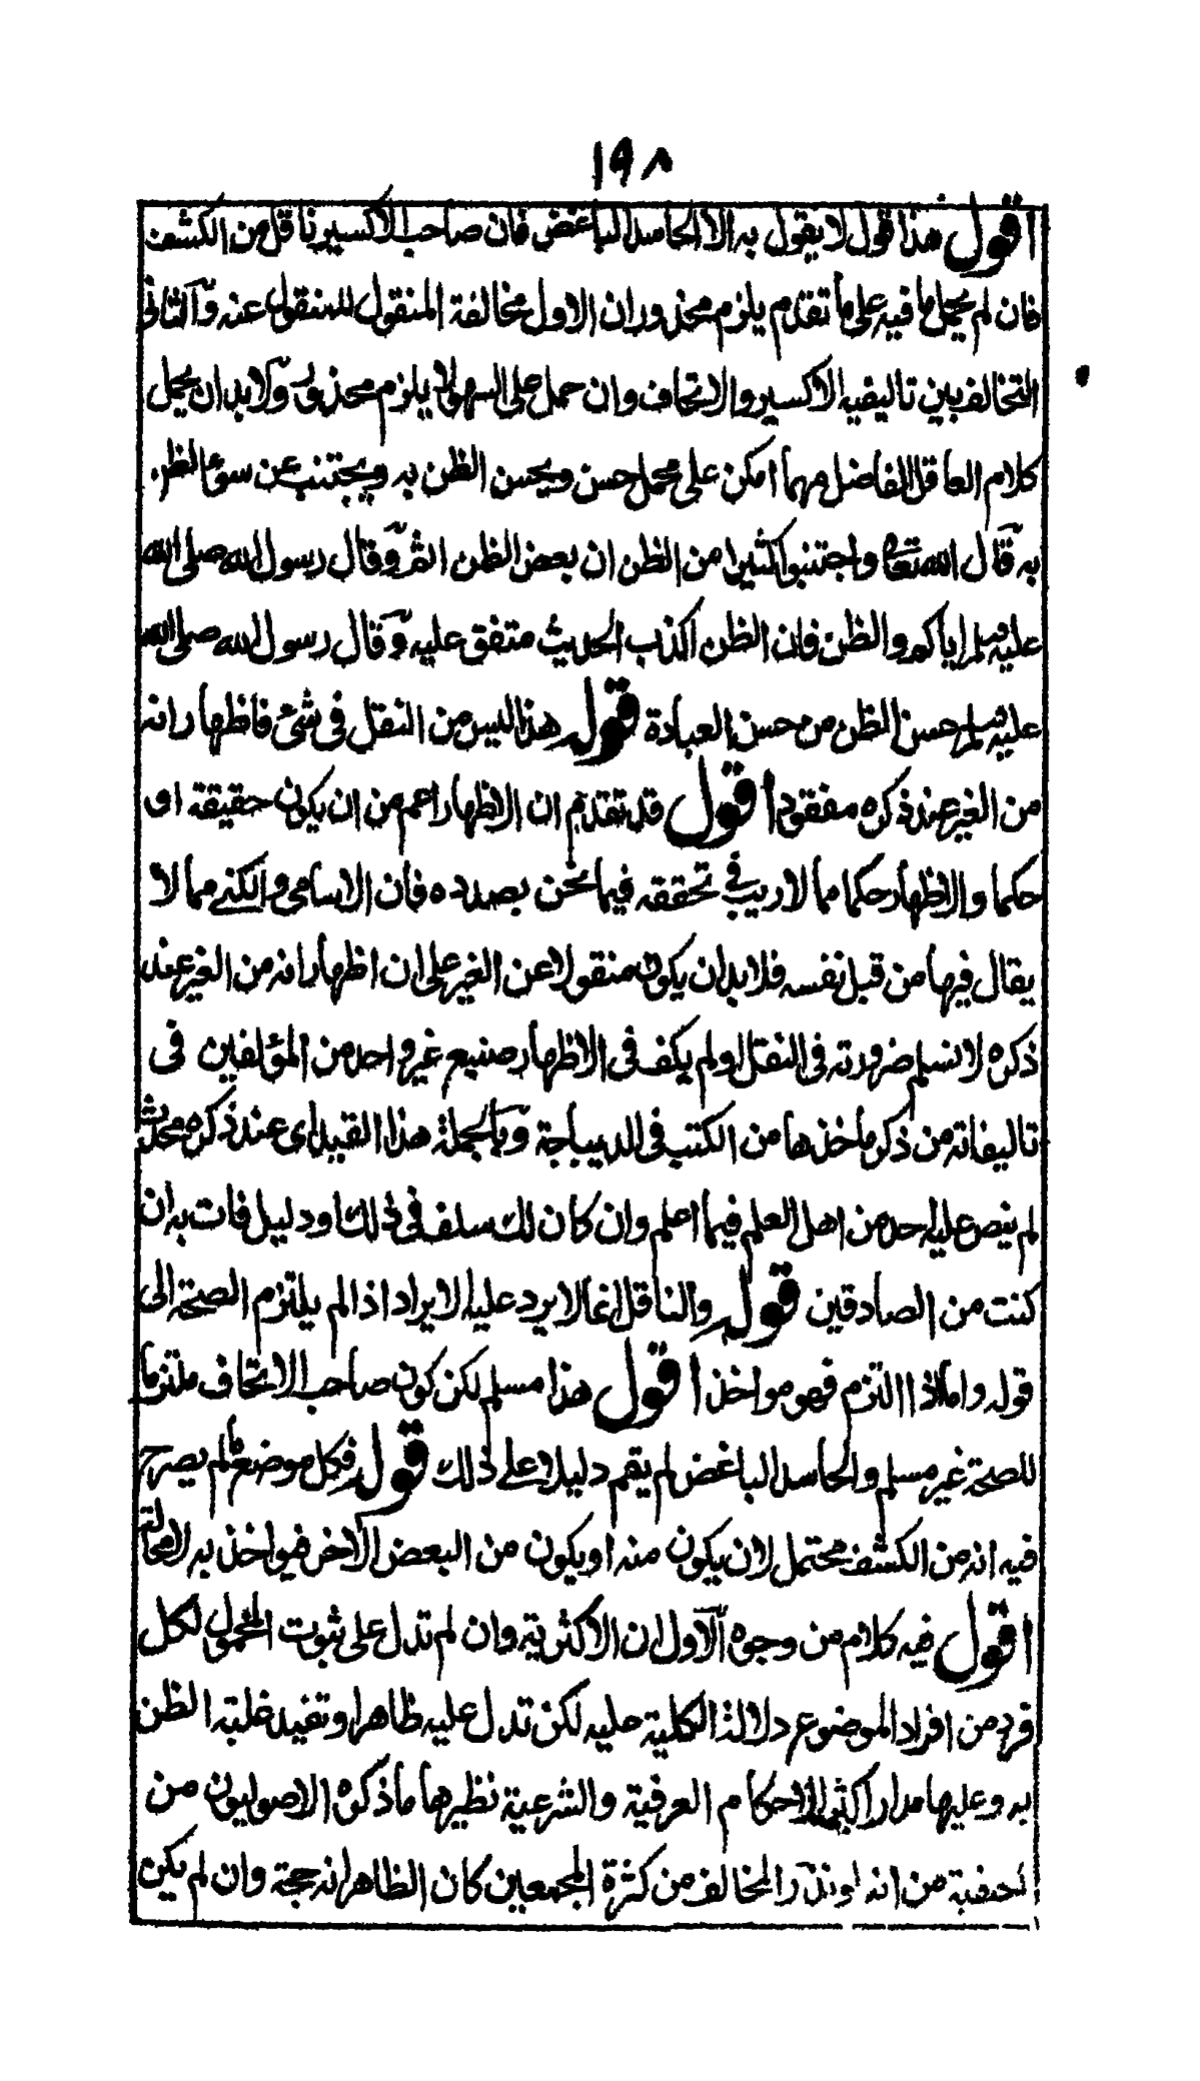 ١٩٨
اقول هذا قول لا يقول به الا الحاسد الباغض فان صاحب الاكسير ناقل من الكشف
فان لم يحمل ما فيه على ما تقدم يلزم محذوران الاول مخالفة المنقول للمنقول عنه والثانى
التخالف بين تاليفيه الاكسير والاتحاف وان حمل على السهو لا يلزم محذور ولا بد ان يحمل
كلام العاقل الفاضل مهما امكن على محمل حسن ويحسن الظن به ويجتنب عن سوء الظن
به قال الله تعالى واجتنبوا كثيرا من الظن ان بعض الظن اثم وقال رسول الله صلى الله
عليه وسلم اياكم والظن فان الظن اكذب الحديث متفق عليه وقال رسول الله صلى الله
عليه وسلم حسن الظن من حسن العبادة قوله هذا ليس من النقل فى شئ فاظهار انه
من الغير عند ذكره مفقود اقول قد تقدم ان الاظهار اعم من ان يكون حقيقة او
حكما والاظهار حكما مما لا ريب فى تحققه فيما نحن بصدده فان الاسامى والكنے مما لا
يقال فيها من قبل نفسه فلا بد ان يكون منقولا عن الغير على ان اظهار انه من الغير عند
ذكره لا نسلم ضرورته فى النقل اولم يكف فى الاظهار صنيع غير واحد من المؤلفين فى
تاليفاته من ذكر ماخذها من الكتب فى الديباجة وبالجملة هذا القيد اى عند ذكره محدث
لم ينص عليه احد من اهل العلم فيما اعلم وان كان لك سلف فى ذلك او دليل فات به ان
كنت من الصادقين قوله والناقل انما لا يرد عليه الايراد اذا لم يلتزم الصحة الى
قوله واما اذا التزم فهو مواخذ اقول هذا مسلم لكن كون صاحب الاتحاف ملتزما
للصحة غير مسلم والحاسد الباغض لم يقم دليلا على ذلك قوله فكل موضع لم يصرح
فيه انه من الكشف محتمل لان يكون منه او يكون من البعض الآخر فيواخذ به لا محالة
اقول فيه كلام من وجوه الاول ان الاكثرية وان لم تدل على ثبوت المحمول لكل
فرد من افراد الموضوع دلالة الكلية عليه لكن تدل عليه ظاهرا وتفيد غلبة الظن
به وعليها مدار اكثر الاحكام العرفية والشرعية نظيرها ما ذكره الاصوليون من
الحنفية من انه لو ندر المخالف من كثرة المجمعين كان الظاهر انه حجة وان لم يكن